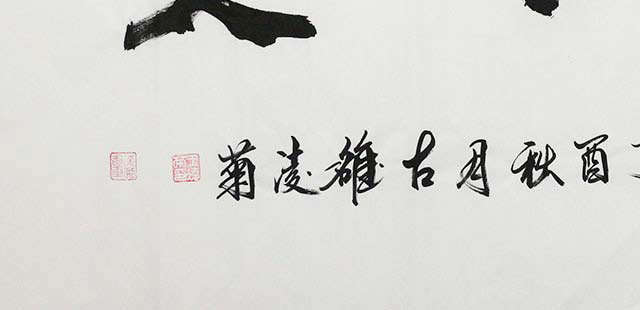 酉秋月古凌菊